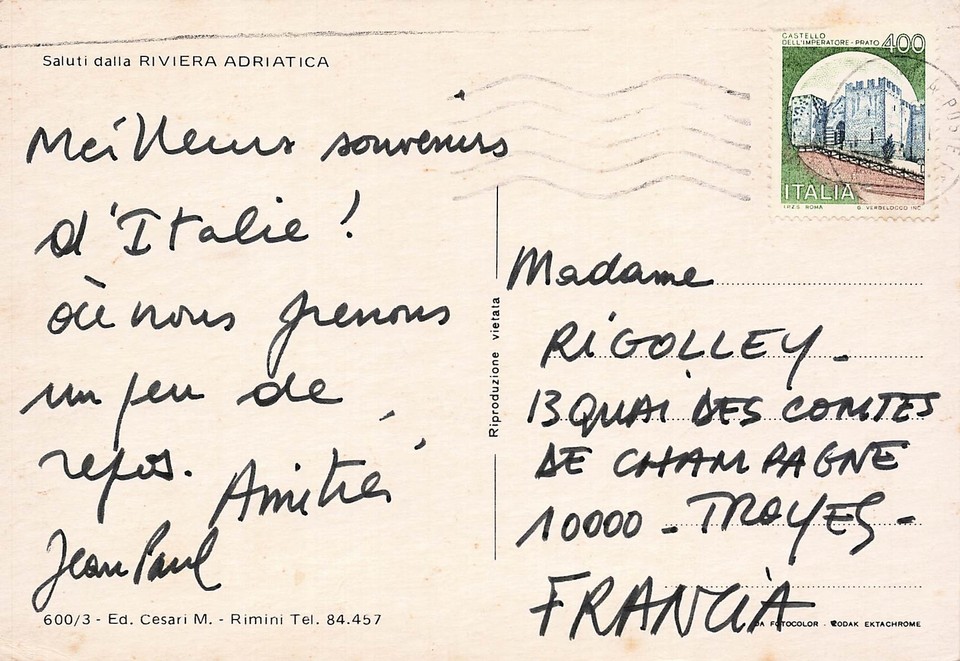 Saluti dalla RIVIERA ADRIATICA
Meilleurs souvenirs
d'Italie !
où nous prenons
un peu de
repos.
Amitiés
Jean Paul
600/3 - Ed. Cesari M. - Rimini Tel. 84.457
Riproduzione vietata
CASTELLO
DELL'IMPERATORE - PRATO 400
ITALIA
I.P.Z.S. ROMA
Madame
RIGOLLEY -
13 QUAI DES COMTES
DE CHAMPAGNE
10000 - TROYES -
FRANCIA
FOTOCOLOR - KODAK EKTACHROME